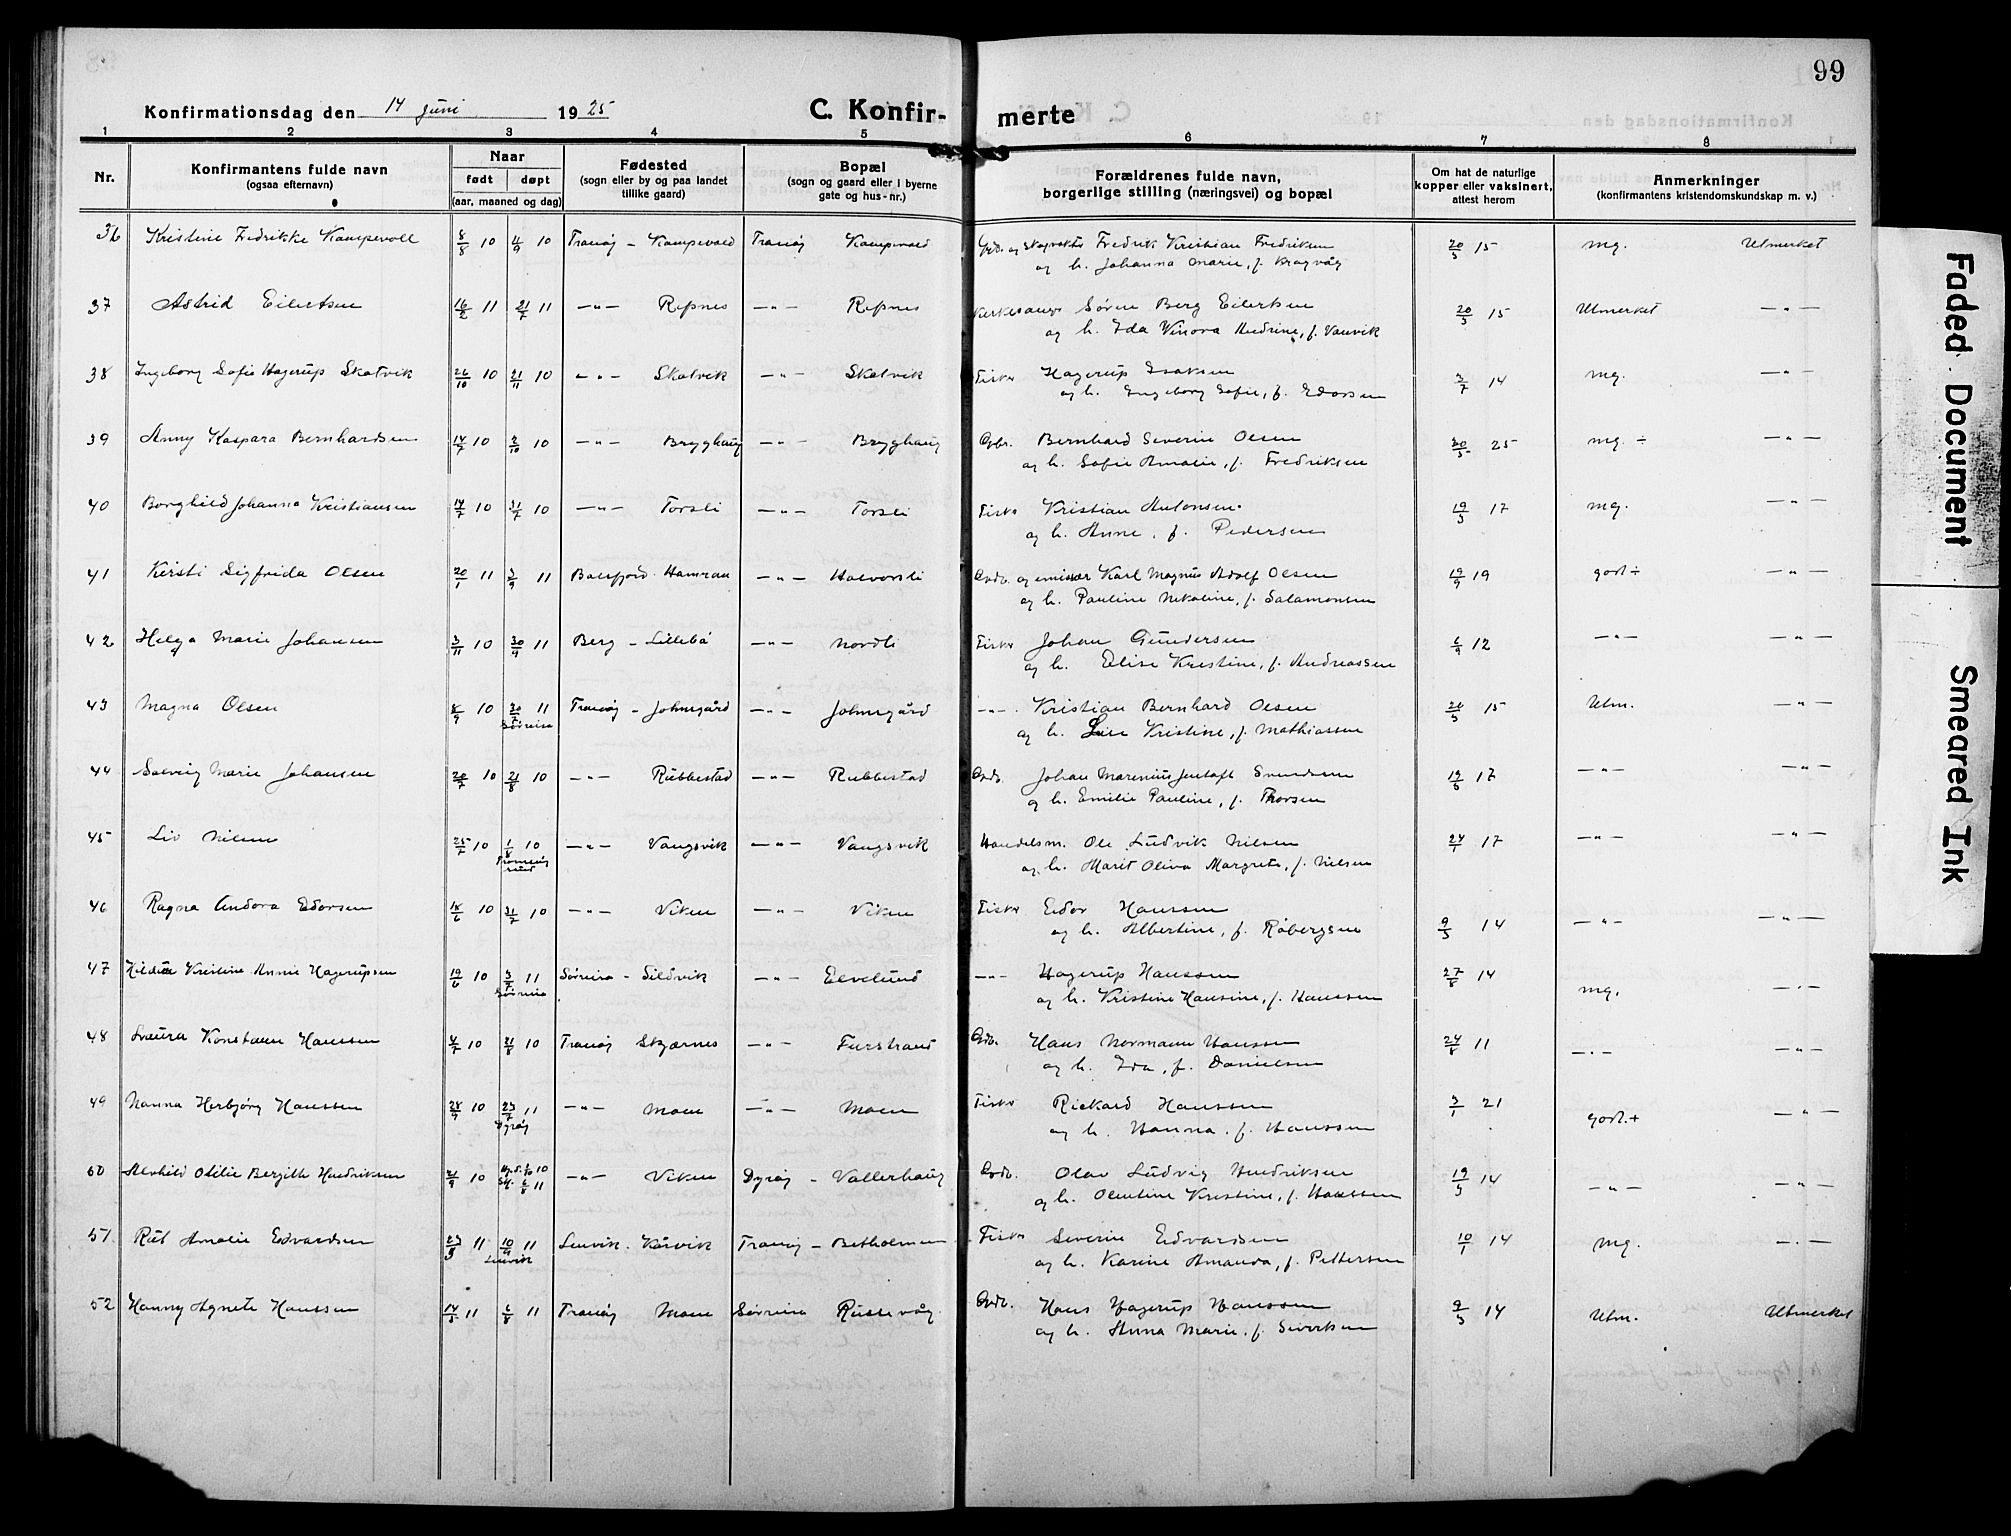 99
Konfirmationsdag den 14 juni 1925 C. Konfirmerte
1 2 3 4 5 6 7 8
Nr. Konfirmantens fulde navn (ogsaa efternavn) Naar født døpt (aar, maaned og dag) Fødested (sogn eller by og paa landet tillike gaard) Bopæl (sogn og gaard eller i byerne gate og hus-nr.) Forældrenes fulde navn, borgerlige stilling (næringsvei) og bopæl Om hat de naturlige kopper eller vaksinert, attest herom Anmerkninger (konfirmantens kristendomskundskap m. v.)
36 Kristine Fedrikke Kampevoll 8/8 10 4/9 10 Tranøj - Kampevold Tranøj Kampevold Fredrik Kristian Fredriksen 20/5 15 mg. Utmerket
og h. Johanna Marie, f. Kragvåg
37 Astrid Eilertsen 16/2 11 21/7 11 -"- Repnes -"- Repnes Søren Berg Eilertsen 20/5 15 Utmerket -"-
og h. Ida Vinora Andrine, f. Vanvik
38 Ingeborg Sofie Hagerup Skatvik 26/10 10 21/11 10 -"- Skatvik -"- Skatvik Fisker Hagerup Isaksen 3/7 14 mg. -"-
og h. Ingeborg Sofie, f. Edorsen
39 Anny Kaspara Bernhardsen 14/7 10 2/10 10 -"- Brygghaug -"- Brygghaug Gbr. Bernhard Severin Olsen 20/5 25 mg ÷ -"-
og h. Sofie Amalie, f. Fredriksen
40 Borghild Johanna Kristiansen 14/7 10 31/7 10 -"- Torsli -"- Torsli Fisker Kristian Antonsen. 19/5 17 mg. -"-
og h. Anne, f. Pedersen
41 Kirsti Sigfrida Olsen 20/1 11 3/9 11 Balsfjord - Hamran -"- Halvorsli Gdb. og emissær Karl Magnus Adolf Olsen 19/9 19 godt ÷ -"-
og h. Pauline Nikoline, f. Salamonsen
42 Helga Marie Johansen 3/11 10 30/9 11 Berg - Lillebø -"- Nordli Fisker Johan Gundersen 6/9 12 -"- -"-
og h. Elise Kristine, f. Andreassen
43 Magna Olsen 8/9 10 30/7 11 Sørreisa Tranøj - Johnsgård -"- Johnsgård -"- Kristian Bernhard Olsen 20/5 15 Utm. -"-
og h. Lise Kristine, f. Mathiassen
44 Solveig Marie Johansen 20/7 10 21/8 10 -"- Rubbestad -"- Rubbestad Gdb. Johan Marenius Jentoft Svendsen 19/5 17 -"- -"-
og h. Emilie Pauline, f. Thorsen
45 Liv Nilsen 25/7 10 1/8 10 -"- Vangsvik -"- Vangsvik Handelsm. Ole Ludvik Nilsen 24/1 17 -"- -"-
og h. Marit Oliva Margrete, f. Nilsen
46 Ragna Andora Edorsen 18/6 10 31/7 10 -"- Viken -"- Viken Fisker Edor Hanssen 9/5 14 -"- -"-
og h. Albertine, f. Robergsen
47 Kristine Annie Hagerupsen 19/6 10 3/7 11 Sørreisa Sørreisa - Sildvik -"- Elvelund -"- Hagerup Hanssen 27/8 14 mg. -"-
og h. Kristine Hansine, f. Hanssen
48 Laura Konstanse Hanssen 4/7 10 21/8 10 Tranøj Skjærnes -"- Furstrand Gdb. Hans Normann Hanssen 24/8 11 -"- -"-
og h. Ida, f. Danielsen
49 Nanna Herbjørg Hanssen 28/9 10 23/7 11 Dyrøj -"- Moen -"- Moen Fisker Rickard Hanssen 3/1 21 godt + -"-
og h. Hanna, f. Hanssen
50 Alvhild Otilie Bergitte Hendriksen 21/9 10 -"- Viken Dyrøj - Vallerhaug Gdb. Olav Ludvig Hendriksen 19/5 14 -"- -"-
og h. Olentine Kristine, f. Hanssen
51 Rut Amalie Edvardsen 23/5 11 10/9 11 Lenvik Lenvik - Kårvik Tranøj - Botholmen Fisker Severin Edvardsen 10/1 14 mg. -"-
og h. Karine Amanda, f. Pettersen
52 Hanny Agnete Hanssen 14/5 11 6/8 11 Tranøj Moen Sørreisa Russevåg Gdb. Hans Hagerup Hanssen 9/5 14 Utm. Utmerket
og h. Anna Marie, f. Sivertsen
Faded Document
Smeared Ink